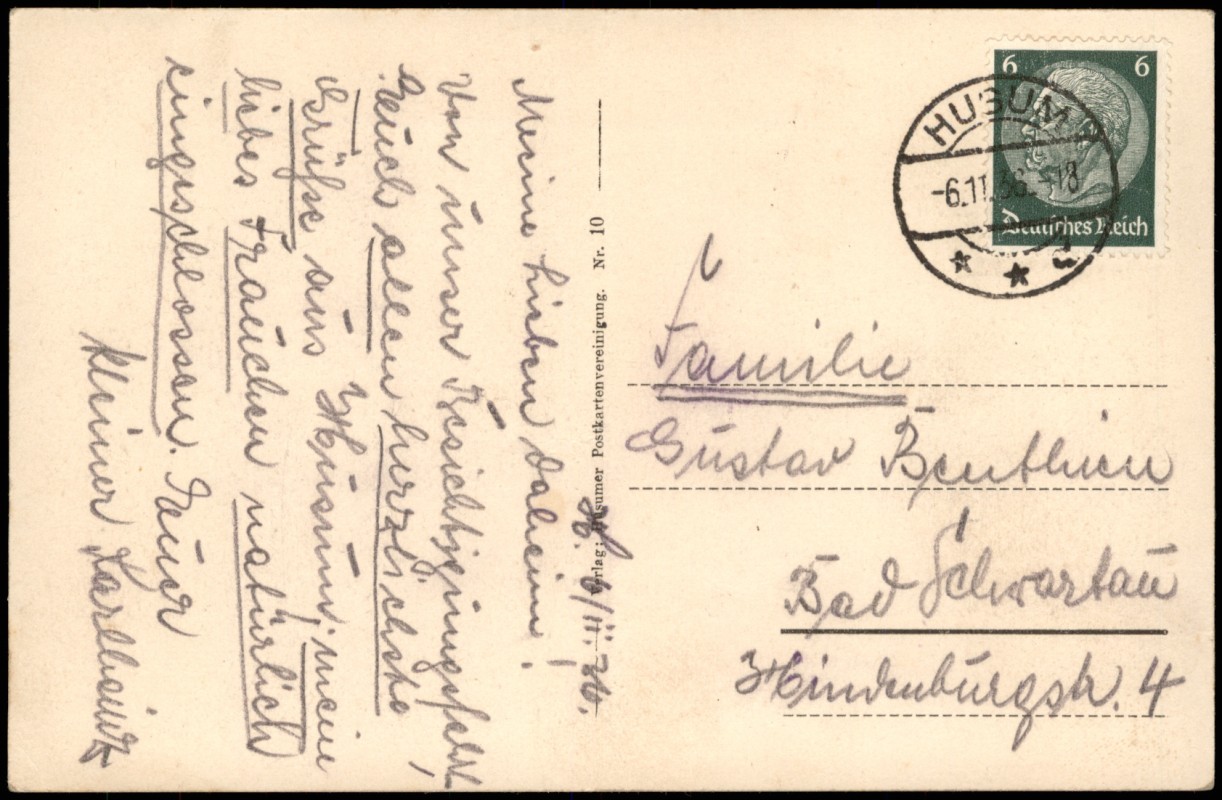 H. 6/11. 36.
Meine Lieben daheim!
Von unser Besichtigungsfahrt,
Euch allen herzlichste
Grüße aus Husum, meine
liebes Frauchen natürlich
eingeschlossen. Euer
kleiner Karlheinz
Verlag: Husumer Postkartenvereinigung. Nr. 10
6 6
Deutsches Reich
HUSUM
-6.11.36.-18
Familie
Gustav Benthien
Bad Schwartau
Hindenburgstr. 4